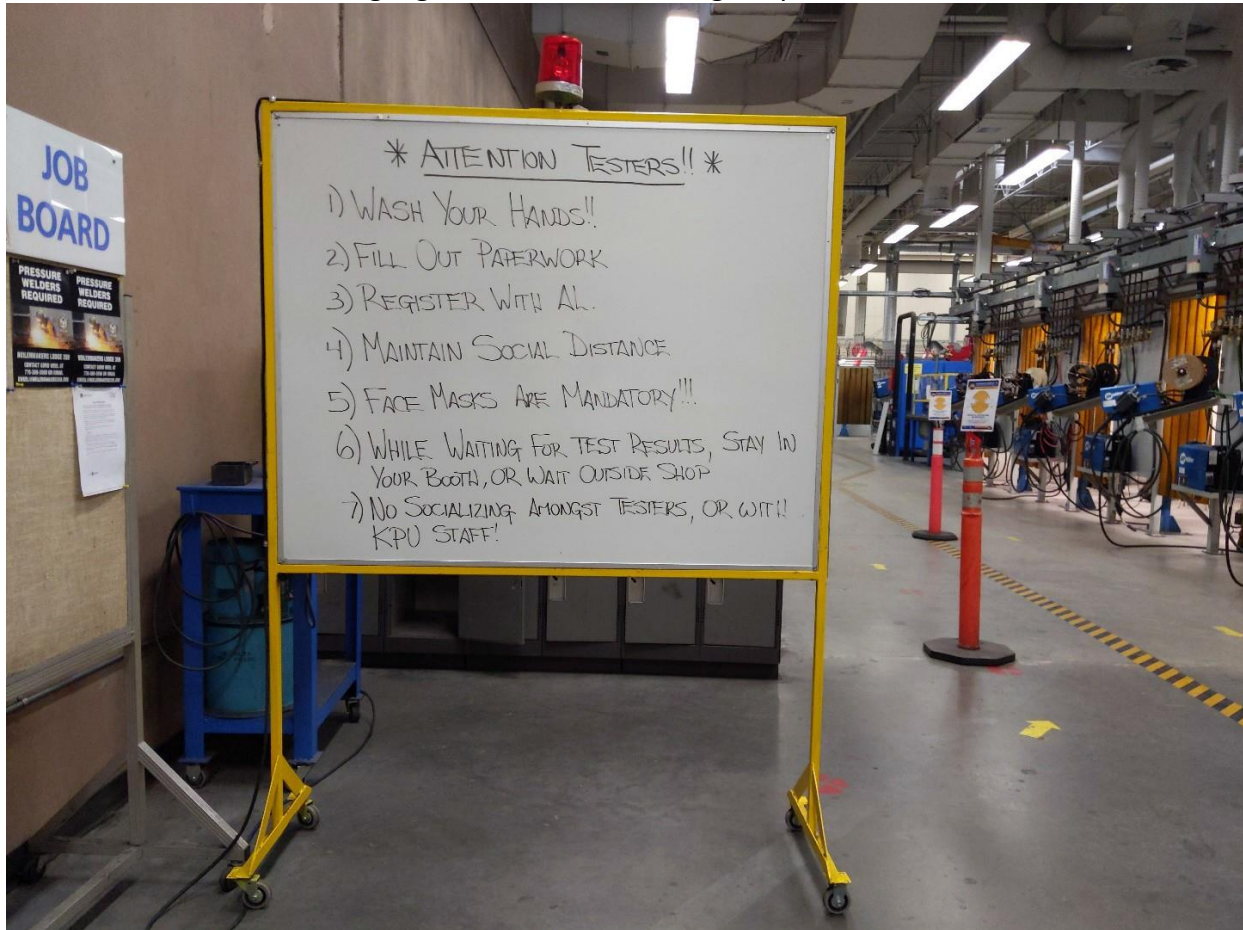 JOB
BOARD
PRESSURE
WELDERS
REQUIRED
PRESSURE
WELDERS
REQUIRED
* ATTENTION TESTERS!! *
1) WASH YOUR HANDS!!
2) FILL OUT PAPERWORK
3) REGISTER WITH AL.
4) MAINTAIN SOCIAL DISTANCE
5) FACE MASKS ARE MANDATORY!!!
6) WHILE WAITING FOR TEST RESULTS, STAY IN
YOUR BOOTH, OR WAIT OUTSIDE SHOP
7) NO SOCIALIZING AMONGST TESTERS, OR WITH
KPU STAFF!